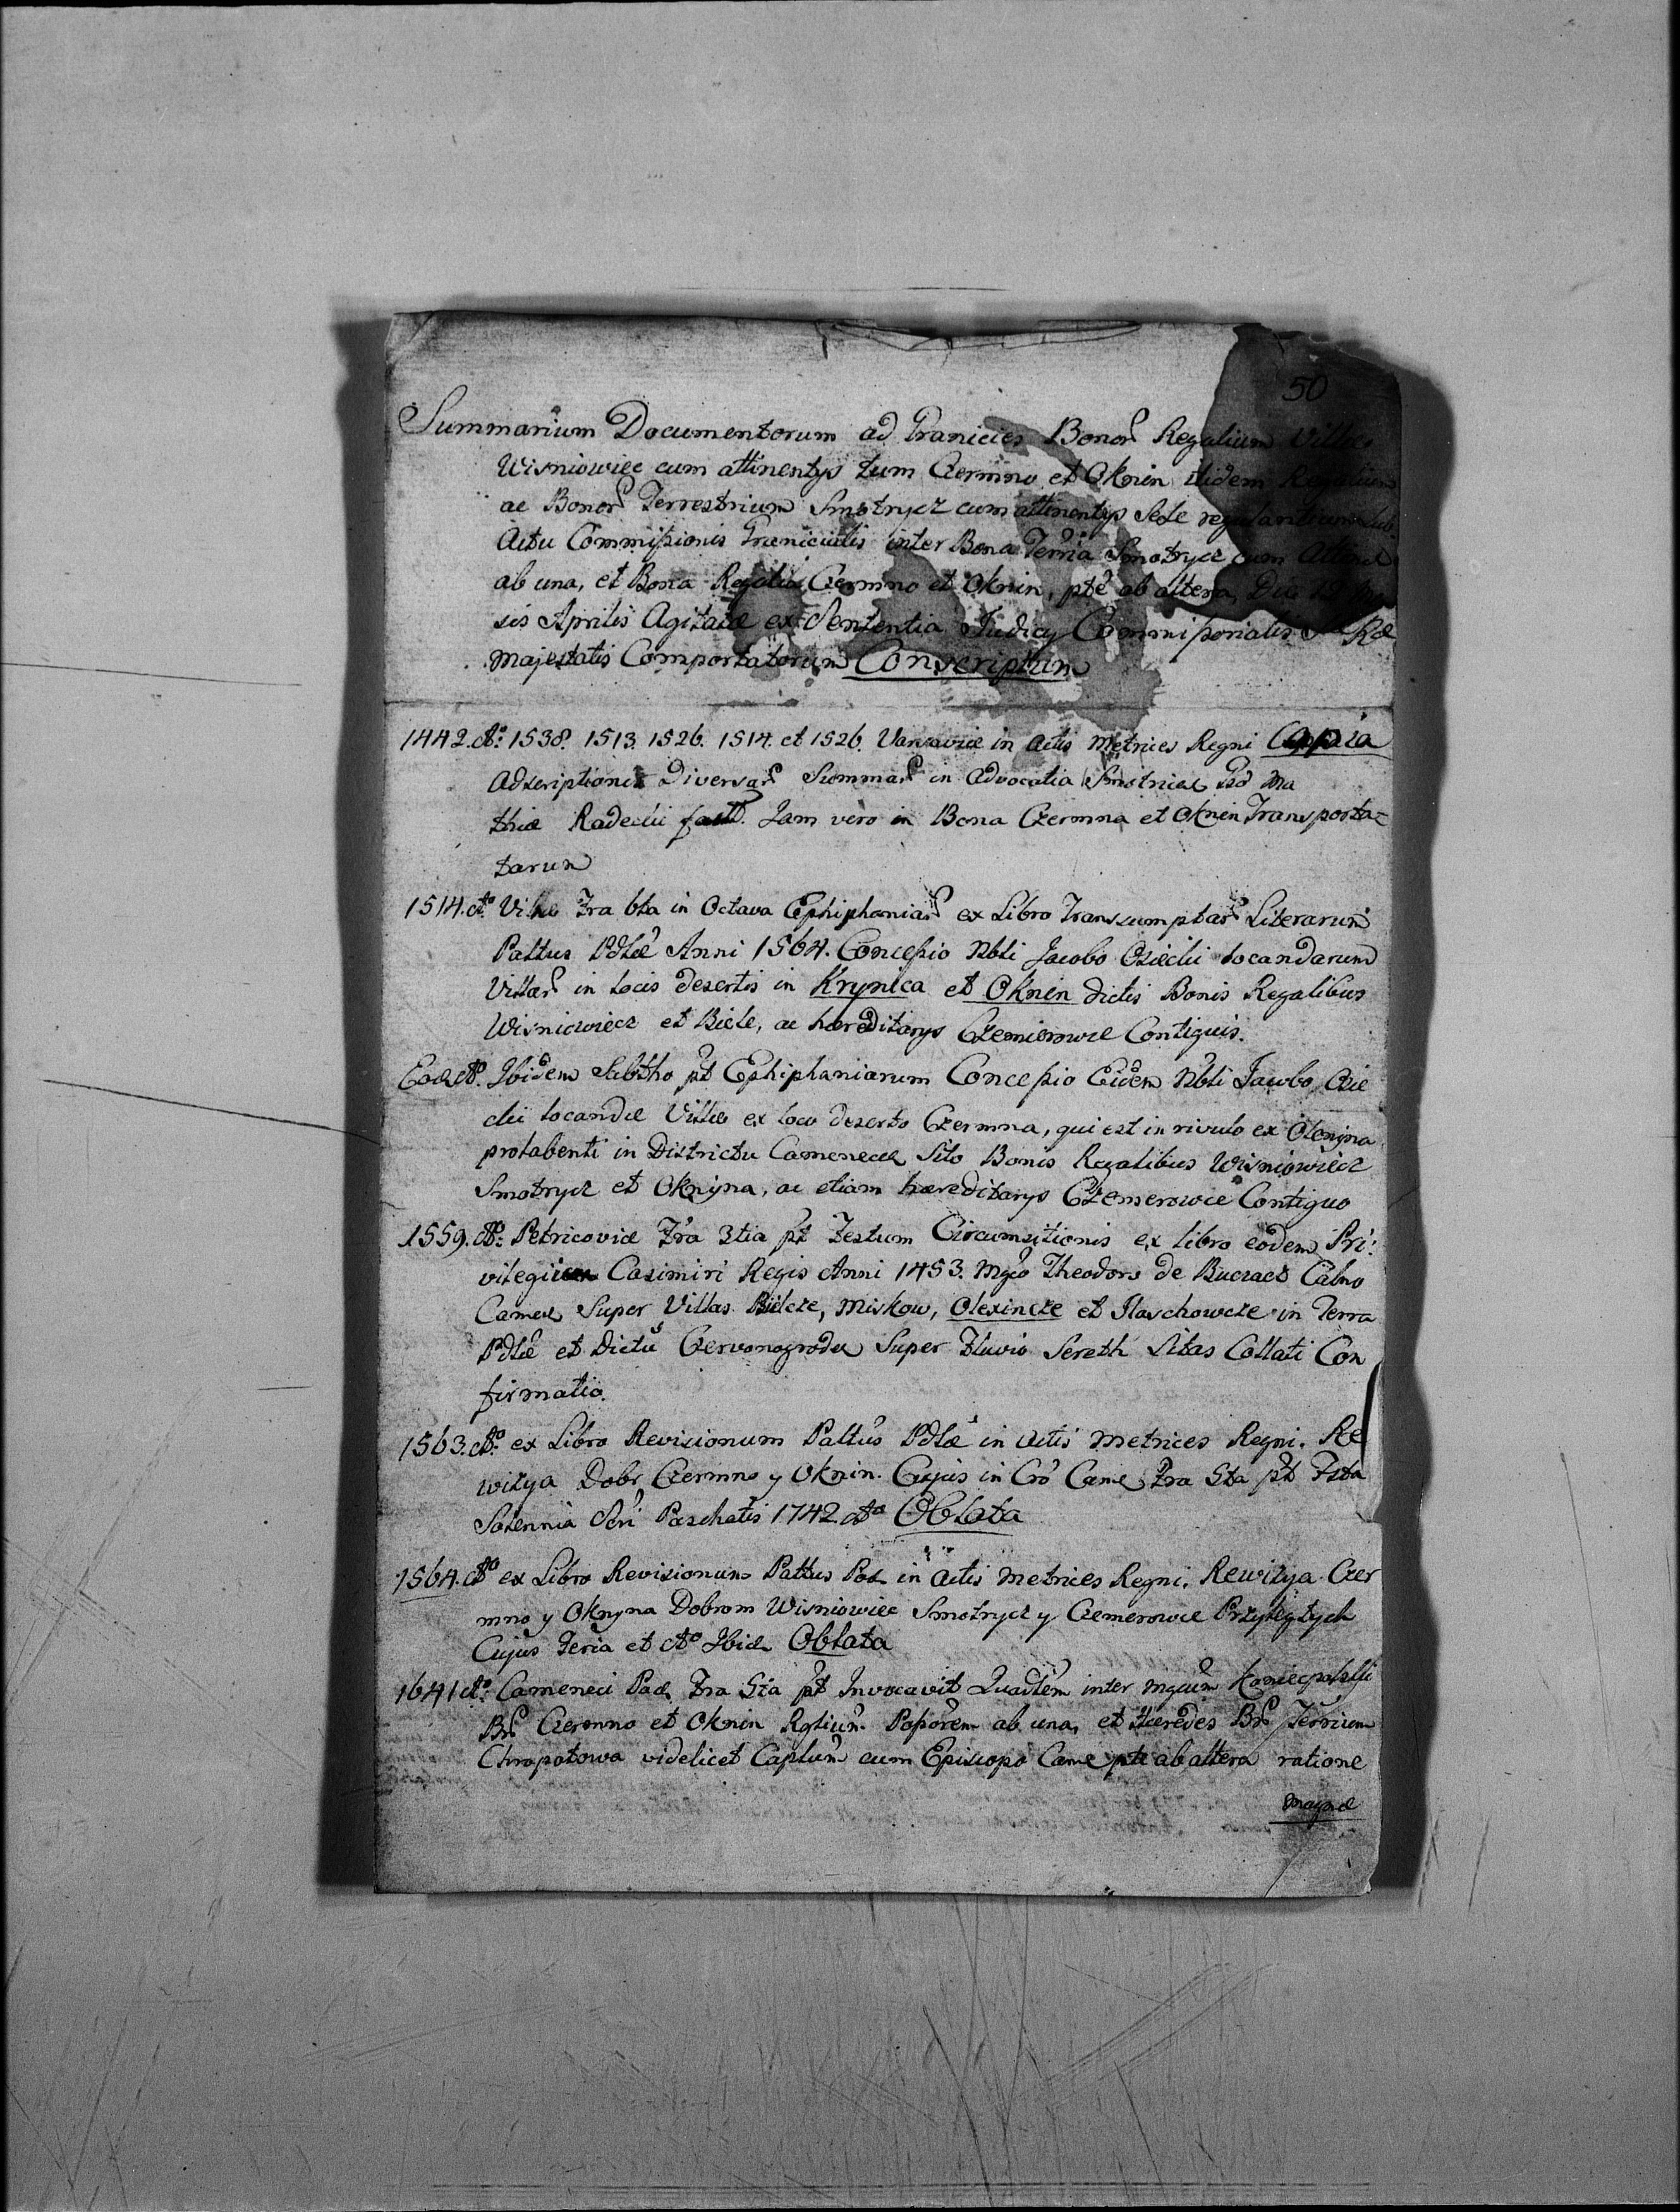 50
Summarium Documentorum ad Granicies Bonor Regalium Villae
Wisniowiec cum attinentys tum Czermno et Oknin itidem Regalium
ac Bonor Terrestrium Smotrycz cum attinentys Sese regulantium Sub
Actu Commissionis Granicialis inter Bona Terria Smotrycz cum Attinen
ab una, et Bona Regalia Czermno et Oknin, pte ab altera, Die 12
sis Aprilis Agitatae ex Sententia Judicy Commissorialis Rae
Majestatis Comportatorum Conscriptum
1442. Ao: 1538. 1513. 1526. 1514. et 1526. Varsaviae in Actis Metrices Regni Copia
Adscriptionis Diversar Summar in Advocatia Smotricz Gso Ma
thiae Radecki Jam vero in Bona Czermna et Oknin Transporta=
tarum
1514. Ao Vilnae Fra 6ta in Octava Ephiphaniar ex Libro Transsumptar Literarum
Pattus Pdlae Anni 1564. Concessio Nbli Jacobo Osiecki Locandarum
Villar in Locis desertis in Krynica et Oknin dictis Bonis Regalibus
Wisniowiecz et Biele, ac haereditarys Czemierowce Contiguis.
Eod Ao. Ibidem Sabtho pt Ephiphaniarum Concessio Eidem Nbli Jacobo Osie
cki Locandae Villae ex loco deserto Czermna, qui est in rivulo ex Olenina
prolabenti in Districtu Camenecen Sito Bonis Regalibus Wisniowiecz
Smotrycz et Oknyna, ac etiam haereditarys Czemerowce Contiguo
1559. Ao: Petricoviae Fra 3tia pt Festum Circumsitionis ex libro eodem Pri:
vilegium Casimiri Regis Anni 1453. Mgco Theodoro de Buczacz Cabno
Camen Super Villas Bielcze, Miskow, Olexincze et Ilaschowcze in Terra
Pdlae et Dictu Czervonogroden Super Fluvio Sereth Sitas Collati Con
firmatio.
1563. Ao: ex Libro Revisionum Paltus Pdlae in Actis Metrices Regni. Re
wizya Dobr Czermno y Oknin. Cujus in Cro Came Fra 5ta pt Fsta
Solennia Sri Paschatis 1742. Ao Oblata
1564. Ao ex Libro Revisionum Pattus Pod in Actis Metrices Regni. Rewizya Czer
mno y Oknyna Dobrom Wisniowiec Smotrycz y Czemerowce Przyległych
Cujus Feria et Ao Ibid Oblata
1641 Ao: Cameneci Pod. Fra 5ta pt Invocavit Quadlem inter Mgcum Koniecpolski
Br Czermno et Oknin Rgliu Pssorem ab una, et Haeredes Br Terrium
Chropotowa videlicet Caplum cum Episcopo Came pte ab altera ratione
magnae